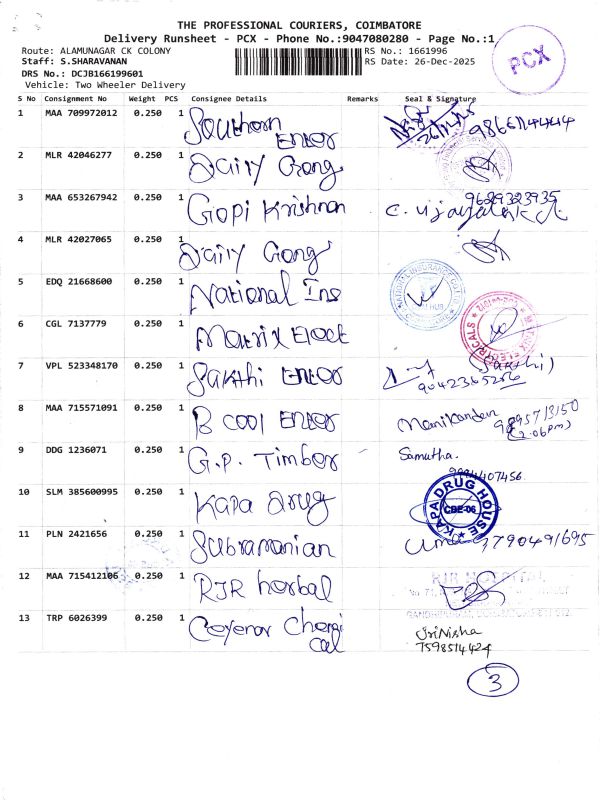 THE PROFESSIONAL COURIERS, COIMBATORE
Delivery Runsheet - PCX - Phone No.:9047080280 - Page No.:1
PCX
Route: ALAMUNAGAR CK COLONY
RS No.: 1661996
Staff: S.SHARAVANAN
RS Date: 26-Dec-2025
DRS No.: DCJB166199601
Vehicle: Two Wheeler Delivery
S No Consignment No Weight PCS Consignee Details Remarks Seal & Signature
1 MAA 709972012 0.250 1 Southern Enter
2 MLR 42046277 0.250 1 Dairy Gong
3 MAA 653267942 0.250 1 Gopi Krishnan 9629323935
4 MLR 42027065 0.250 1 Dairy Gong
5 EDQ 21668600 0.250 1 National Ins
6 CGL 7137779 0.250 1 Matrix Elect
7 VPL 523348170 0.250 1 Sakthi Enter (Sakthi)
9042365256
8 MAA 715571091 0.250 1 B Cool Enter Manikandan 9895713150
(2.06pm)
9 DDG 1236071 0.250 1 G.P. Timber Samutha.
10 SLM 385600995 0.250 1 Kapa Drug KAPA DRUG HOUSE CBE-06
11 PLN 2421656 0.250 1 Subramanian uma 9790491695
12 MAA 715412106 0.250 1 RJR herbal RJR HOSPITAL
13 TRP 6026399 0.250 1 Chemical
SriNisha
7598514424
3